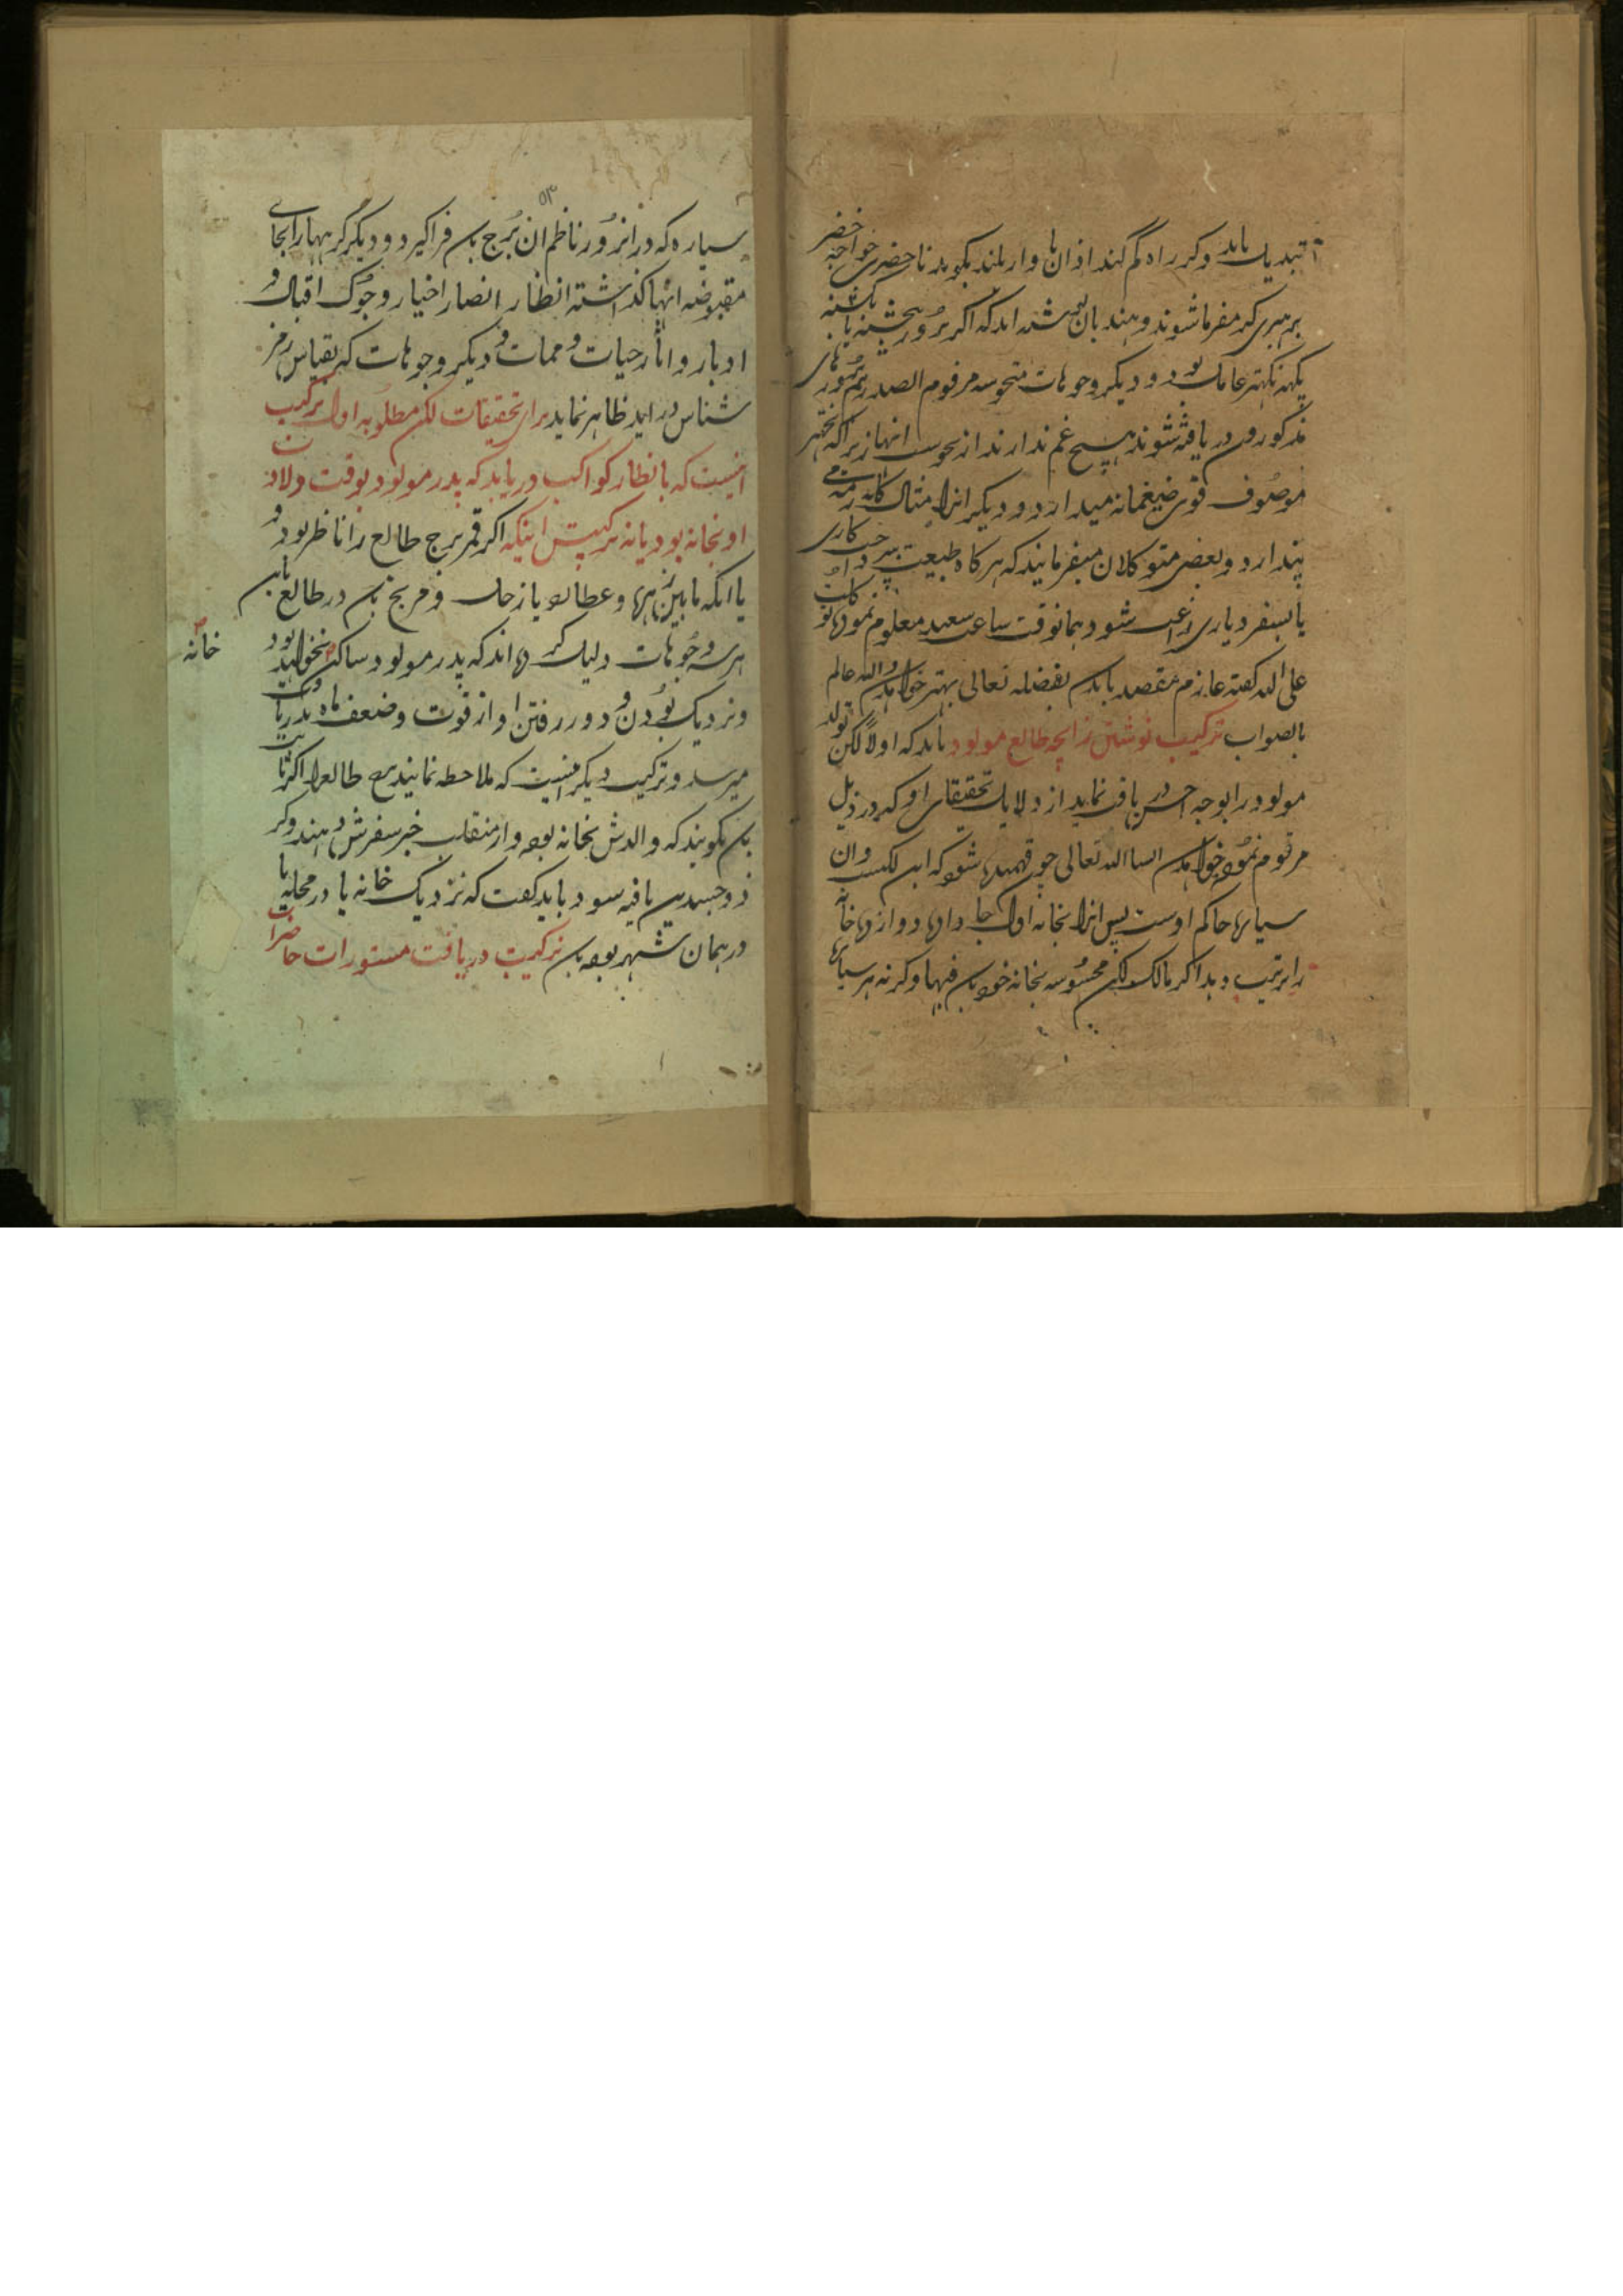 تبدیل یابد و کر راه گم کند اذان با واز بلند بکوید تا حضری خواجه خضر
برهبری کر مفرما شوند و هندیان شده اند که اکر بروز پنجشنبه یا یکشنبه
نکهتر عامل بود و دیکر وجوهات منحوسه مرقوم الصدر بروزهای
مذکورون دریافته شوند هیچ غم ندارند از نحوست انها زیراکه نکهتر
موصوف قوی ضیغمانه میدارد و دیکر انرا مثال
پندارد و بعضی متوکلان میفرمایند که هرکاه طبیعت بر کاری
یا بسفر دیاری راغب شود همانوقت ساعت سعید معلوم نموده توکلت
علی الله کفته عازم مقصد باید بفضله تعالی بهتر خواهد والله عالم
بالصواب ترکیب نوشتن زایجه طالع مولود باید که اولاً لکن تولد
مولود را بوجه احسن دریافت نماید از دلایل تحقیقات او که در ذیل
مرقوم نموده خواهد انشا الله تعالی چون فهمیده شود که این لکنست وان
سیاره حاکم اوست پس انرا بخانه اول جا داده دوازده خانه
را ترتیب دهد اکر مالک لکن محسوسه بخانه خود بان فبها وکرنه هر سیاره
۵۳
سیاره که در انروز ناظم ان برج بان فراکیرد و دیکر کرهها را بجای
مقبوضه انها کذاشته انظار انصار اختیار و جوک اقبال و
ادبار و اثار حیات و ممات و دیکر وجوهات که بقیاس رمز
شناس در اید ظاهر نماید برای تحقیقات لکن مطلوبه اول ترکیب
اینست که بانظار کواکب دریابد که پدر مولود بوقت ولادت
او بخانه بود یا نه ترکیبش اینکه اکر قمر برج طالع را ناظر بود و
یا انکه مابین زهره و عطارد یا زحل و مریخ بان در طالع بان
هر سه وجوهات دلیل کرده اند که پدر مولود ساکن بخواهد بود
خانه
و نزدیک بودن و دور رفتن او از قوت و ضعف ماه بدریافت
میرسد و ترکیب دیکر اینست که ملاحظه نمایند برج طالع را اکر ثابت
بان کویند که والدش بخانه بوده و از منقلب خبر سفرش دهند وکر
ذوجسدین یافته شود باید کفت که نزدیک خانه یا در محله یا
در همان شهر بوده بان ترکیب دریافت مستورات حاضرات